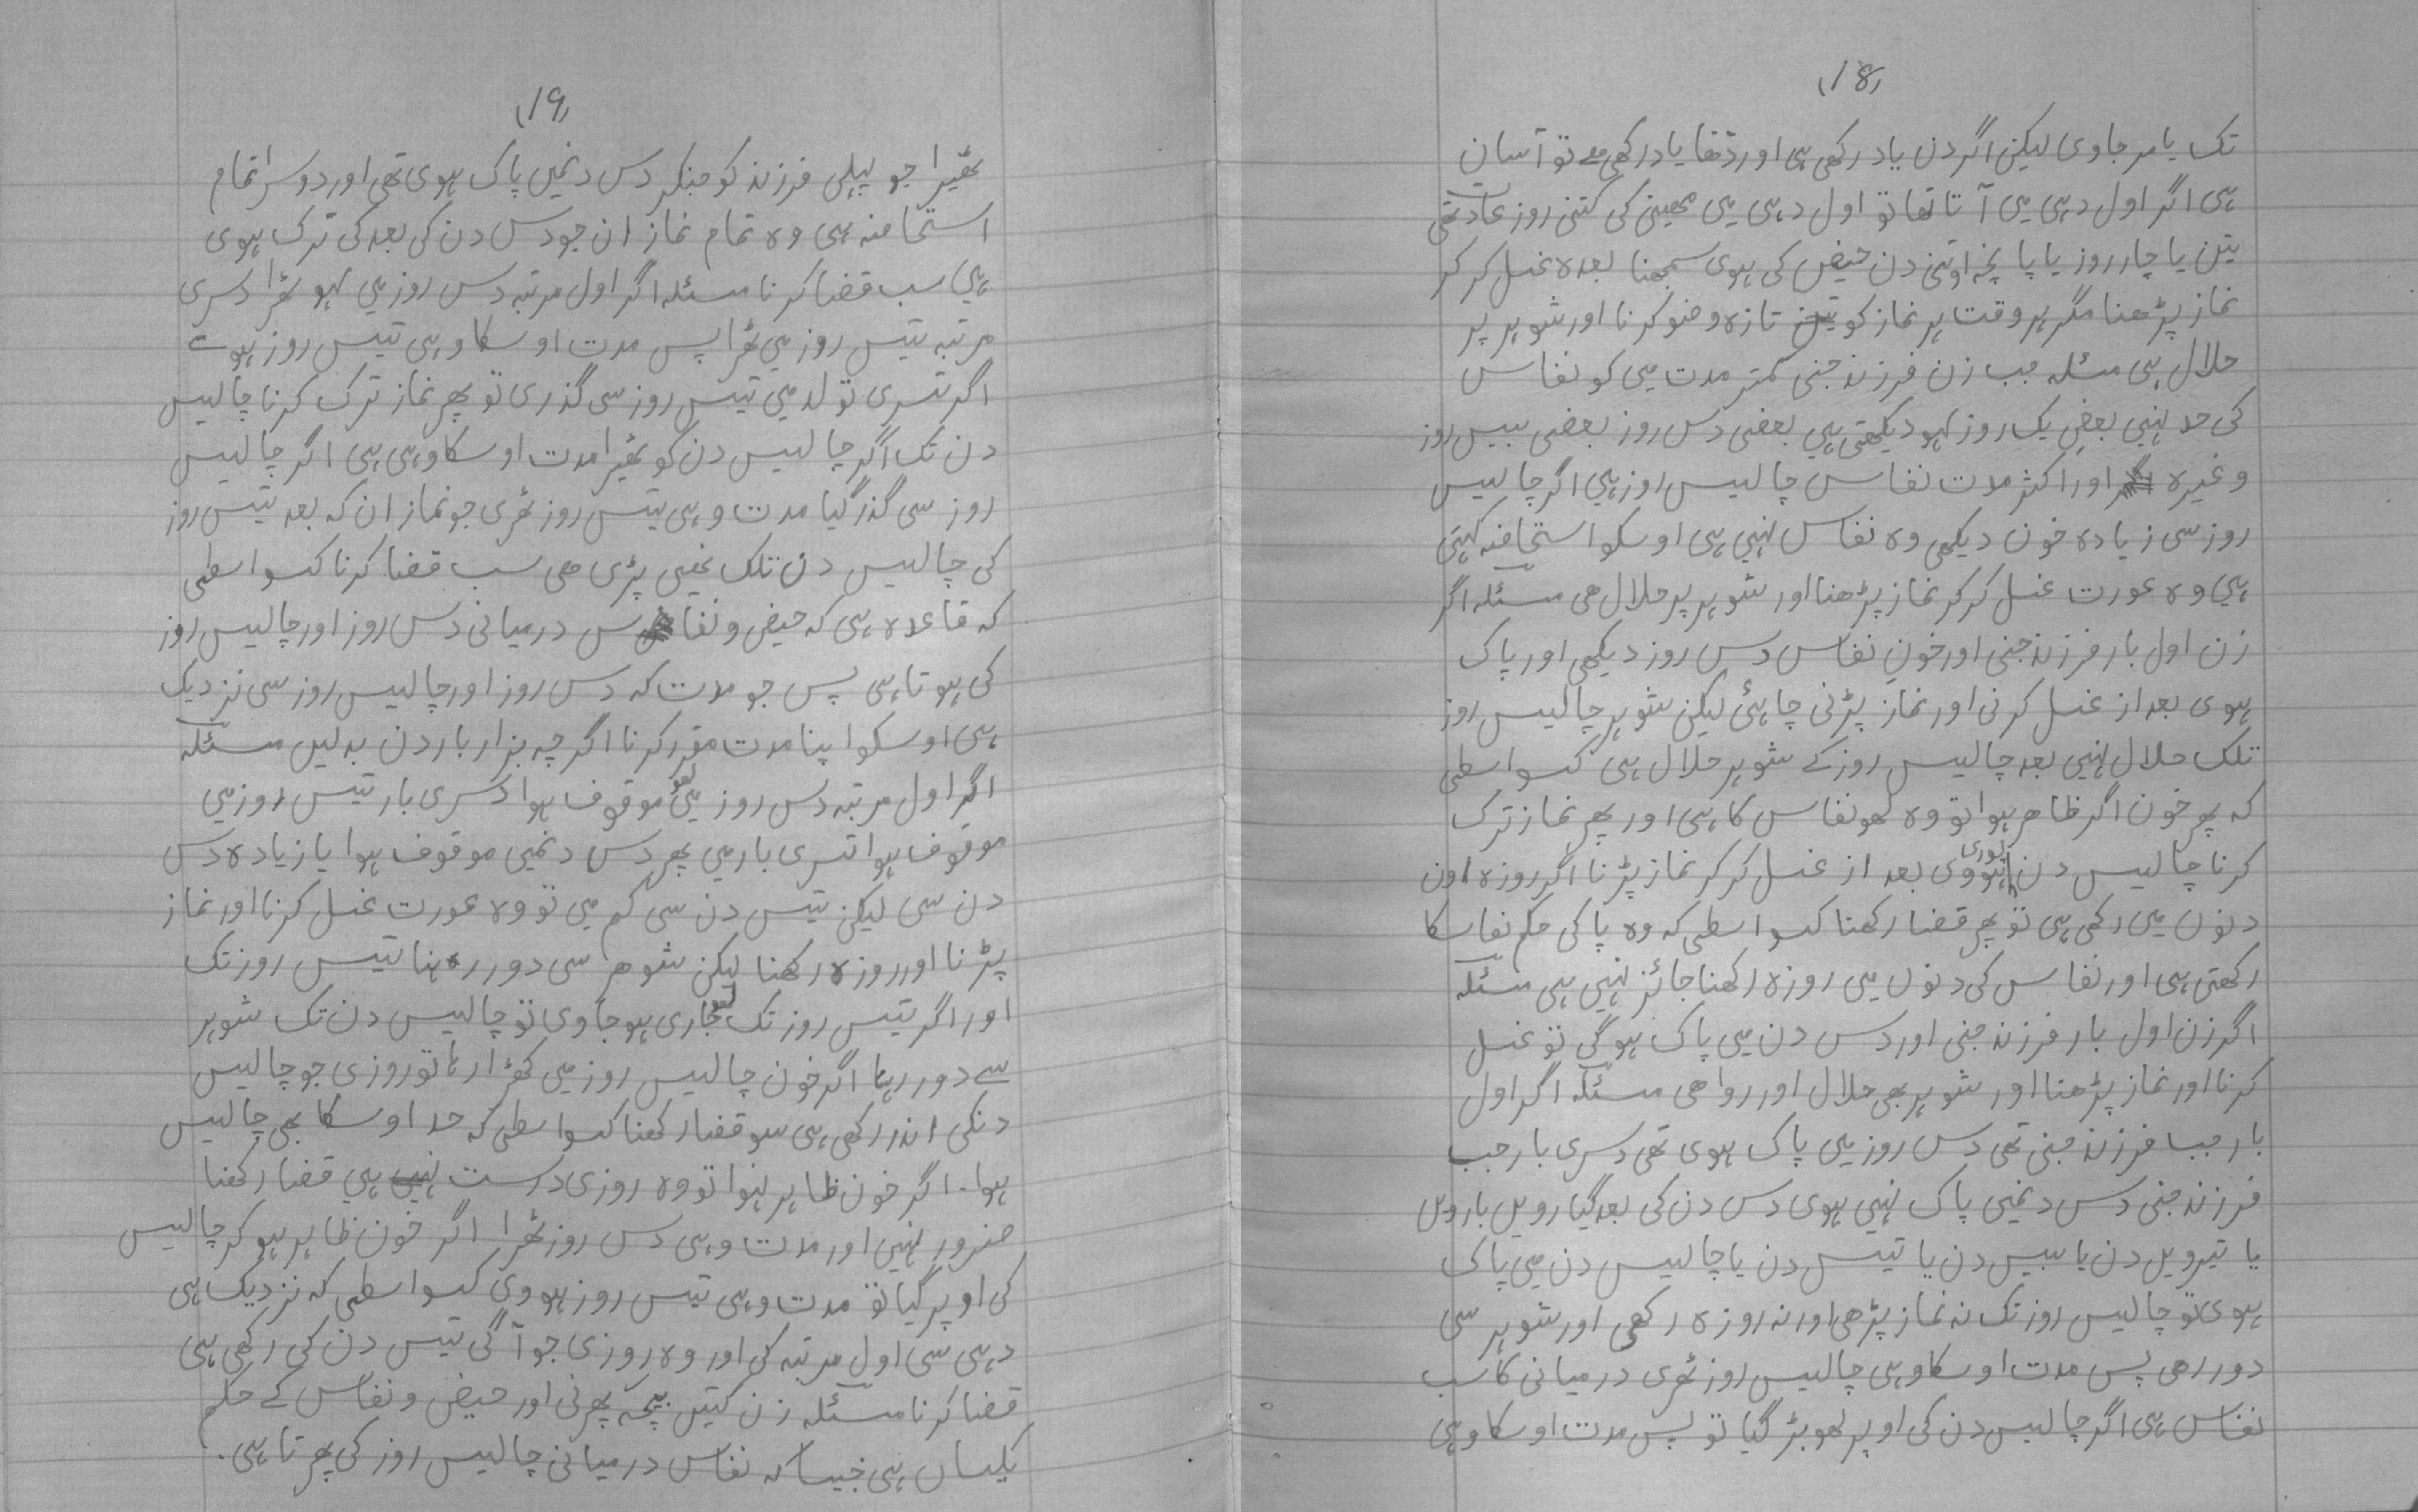 (۱۸)
تک یا مر جاوی لیکن اگر دن یاد رکھی ہی اور دفعا یاد رکھی ہے تو آسان
ہی اگر اول دہی میں آتا تھا تو اول دہی میں مہینی کی کتنی روز عادت تھی
تین یا چار روز یا پانچہ اوتنی دن حیض کی ہوی سمجھنا بعدہ غسل کر کر
نماز پڑھنا مگر ہر وقت ہر نماز کو تین تازہ وضو کرنا اور شوہر پر
حلال ہی مسئلہ جب زن فرزند جنی کمتر مدت میں کو نفاس
کی حد نہیں بعض یک روز لہو دیکھتی ہیں بعضی دس روز بعضی بیس روز
وغیرہ اور اکثر مدت نفاس چالیس روز ہیں اگر چالیس
روز سی زیادہ خون دیکھی وہ نفاس نہیں ہی اوسکو استحاضہ کہتی
ہیں وہ عورت غسل کر کر نماز پڑھنا اور شوہر پر حلال ھی مسئلہ اگر
زن اول بار فرزند جنی اور خون نفاس دس روز دیکھی اور پاک
ہوی بعد از غسل کرنی اور نماز پڑنی چاہئی لیکن شوہر چالیس روز
تلک حلال نہیں بعد چالیس روز کے شوہر حلال ہی کسواسطی
کہ پھر خون اگر ظاھر ہوا تو وہ لھو نفاس کا ہی اور پھر نماز ترک
کرنا چالیس دن پوری ہووی بعد از غسل کر کر نماز پڑنا اگر روزہ اون
دنون میں رکھی ہی تو پھر قضا رکھنا کسواسطی کہ وہ پاکی حکم نفاسکا
رکھتی ہی اور نفاس کی دنوں میں روزہ رکھنا جائز نہیں ہی مسئلہ
اگر زن اول بار فرزند جنی اور دس دن میں پاک ہوگی تو غسل
کرنا اور نماز پڑھنا اور شوہر بھی حلال اور روا ھی مسئلہ اگر اول
بار جب فرزند جنی تھی دس روز میں پاک ہوی تھی دسری بار جب
فرزند جنی دس دنمیں پاک نہیں ہوی دس دن کی بعد گیارویں بارویں
یا تیرویں دن یا بیس دن یا تیس دن یا چالیس دن میں پاک
ہوی تو چالیس روز تک نہ نماز پڑھی اور نہ روزہ رکھی اور شوہر سی
دور رھی پس مدت اوسکا وہی چالیس روز ٹھری درمیانی کا سب
نفاس ہی اگر چالیس دن کی اوپر لھو بڑ گیا تو پس مدت اوسکا وہی
(۱۹)
ٹھیرا جو پہلی فرزند کو جنکر دس دنمیں پاک ہوی تھی اور دوسرا تمام
استحاضہ ہی وہ تمام نماز ان جو دس دن کی بعد کی ترک ہوی
ہیں سب قضا کرنا مسئلہ اگر اول مرتبہ دس روز میں لہو ٹھرا دسری
مرتبہ تیس روز میں ٹھرا پس مدت اوسکا وہی تیس روز ہوے
اگر تسری تولد میں تیس روز سی گذری تو پھر نماز ترک کرنا چالیس
دن تک اگر چالیس دن کو ٹھیرا مدت اوسکا وہی ہی اگر چالیس
روز سی گذر گیا مدت وہی تیس روز ٹھری جو نماز ان کہ بعد تیس روز
کی چالیس دن تلک نھیں پڑی ھی سب قضا کرنا کسواسطی
کہ قاعدہ ہی کہ حیض و نفاس درمیانی دس روز اور چالیس روز
کی ہوتا ہی پس جو مدت کہ دس روز اور چالیس روز سی نزدیک
ہی اوسکو اپنا مدت مقرر کرنا اگر چہ ہزار بار دن بدلیں مسئلہ
اگر اول مرتبہ دس روز میں لھو موقوف ہوا دسری بار تیس روز میں
موقوف ہوا تسری بار میں پھر دس دنمیں موقوف ہوا یا زیادہ دس
دن سی لیکن تیس دن سی کم میں تو وہ عورت غسل کرنا اور نماز
پڑنا اور روزہ رکھنا لیکن شوھر سی دور رہنا تیس روز تک
اور اگر تیس روز تک لھو جاری ہو جاوی تو چالیس دن تک شوہر
سے دور رہنا اگر خون چالیس روز میں کھڑا رہا تو روزی جو چالیس
دنکی اندر رکھی ہی سو قضا رکھنا کسواسطی کہ حد اوسکا بھی چالیس
ہوا۔ اگر خون ظاہر نہوا تو وہ روزی درست نہیں ہیں قضا رکھنا
ضرور نہیں اور مدت وہی دس روز ٹھرا اگر خون ظاہر ہو کر چالیس
کی اوپر گیا تو مدت وہی تیس روز ہووی کسواسطی کہ نزدیک ہی
دہی سی اول مرتبہ کی اور وہ روزی جو آگی تیس دن کی رکھی ہی
قضا کرنا مسئلہ زن کیتیں بچہ پھرنی اور حیض و نفاس کے حکم
یکساں ہی جیسا کہ نفاس درمیانی چالیس روز کی پھرتا ہی۔